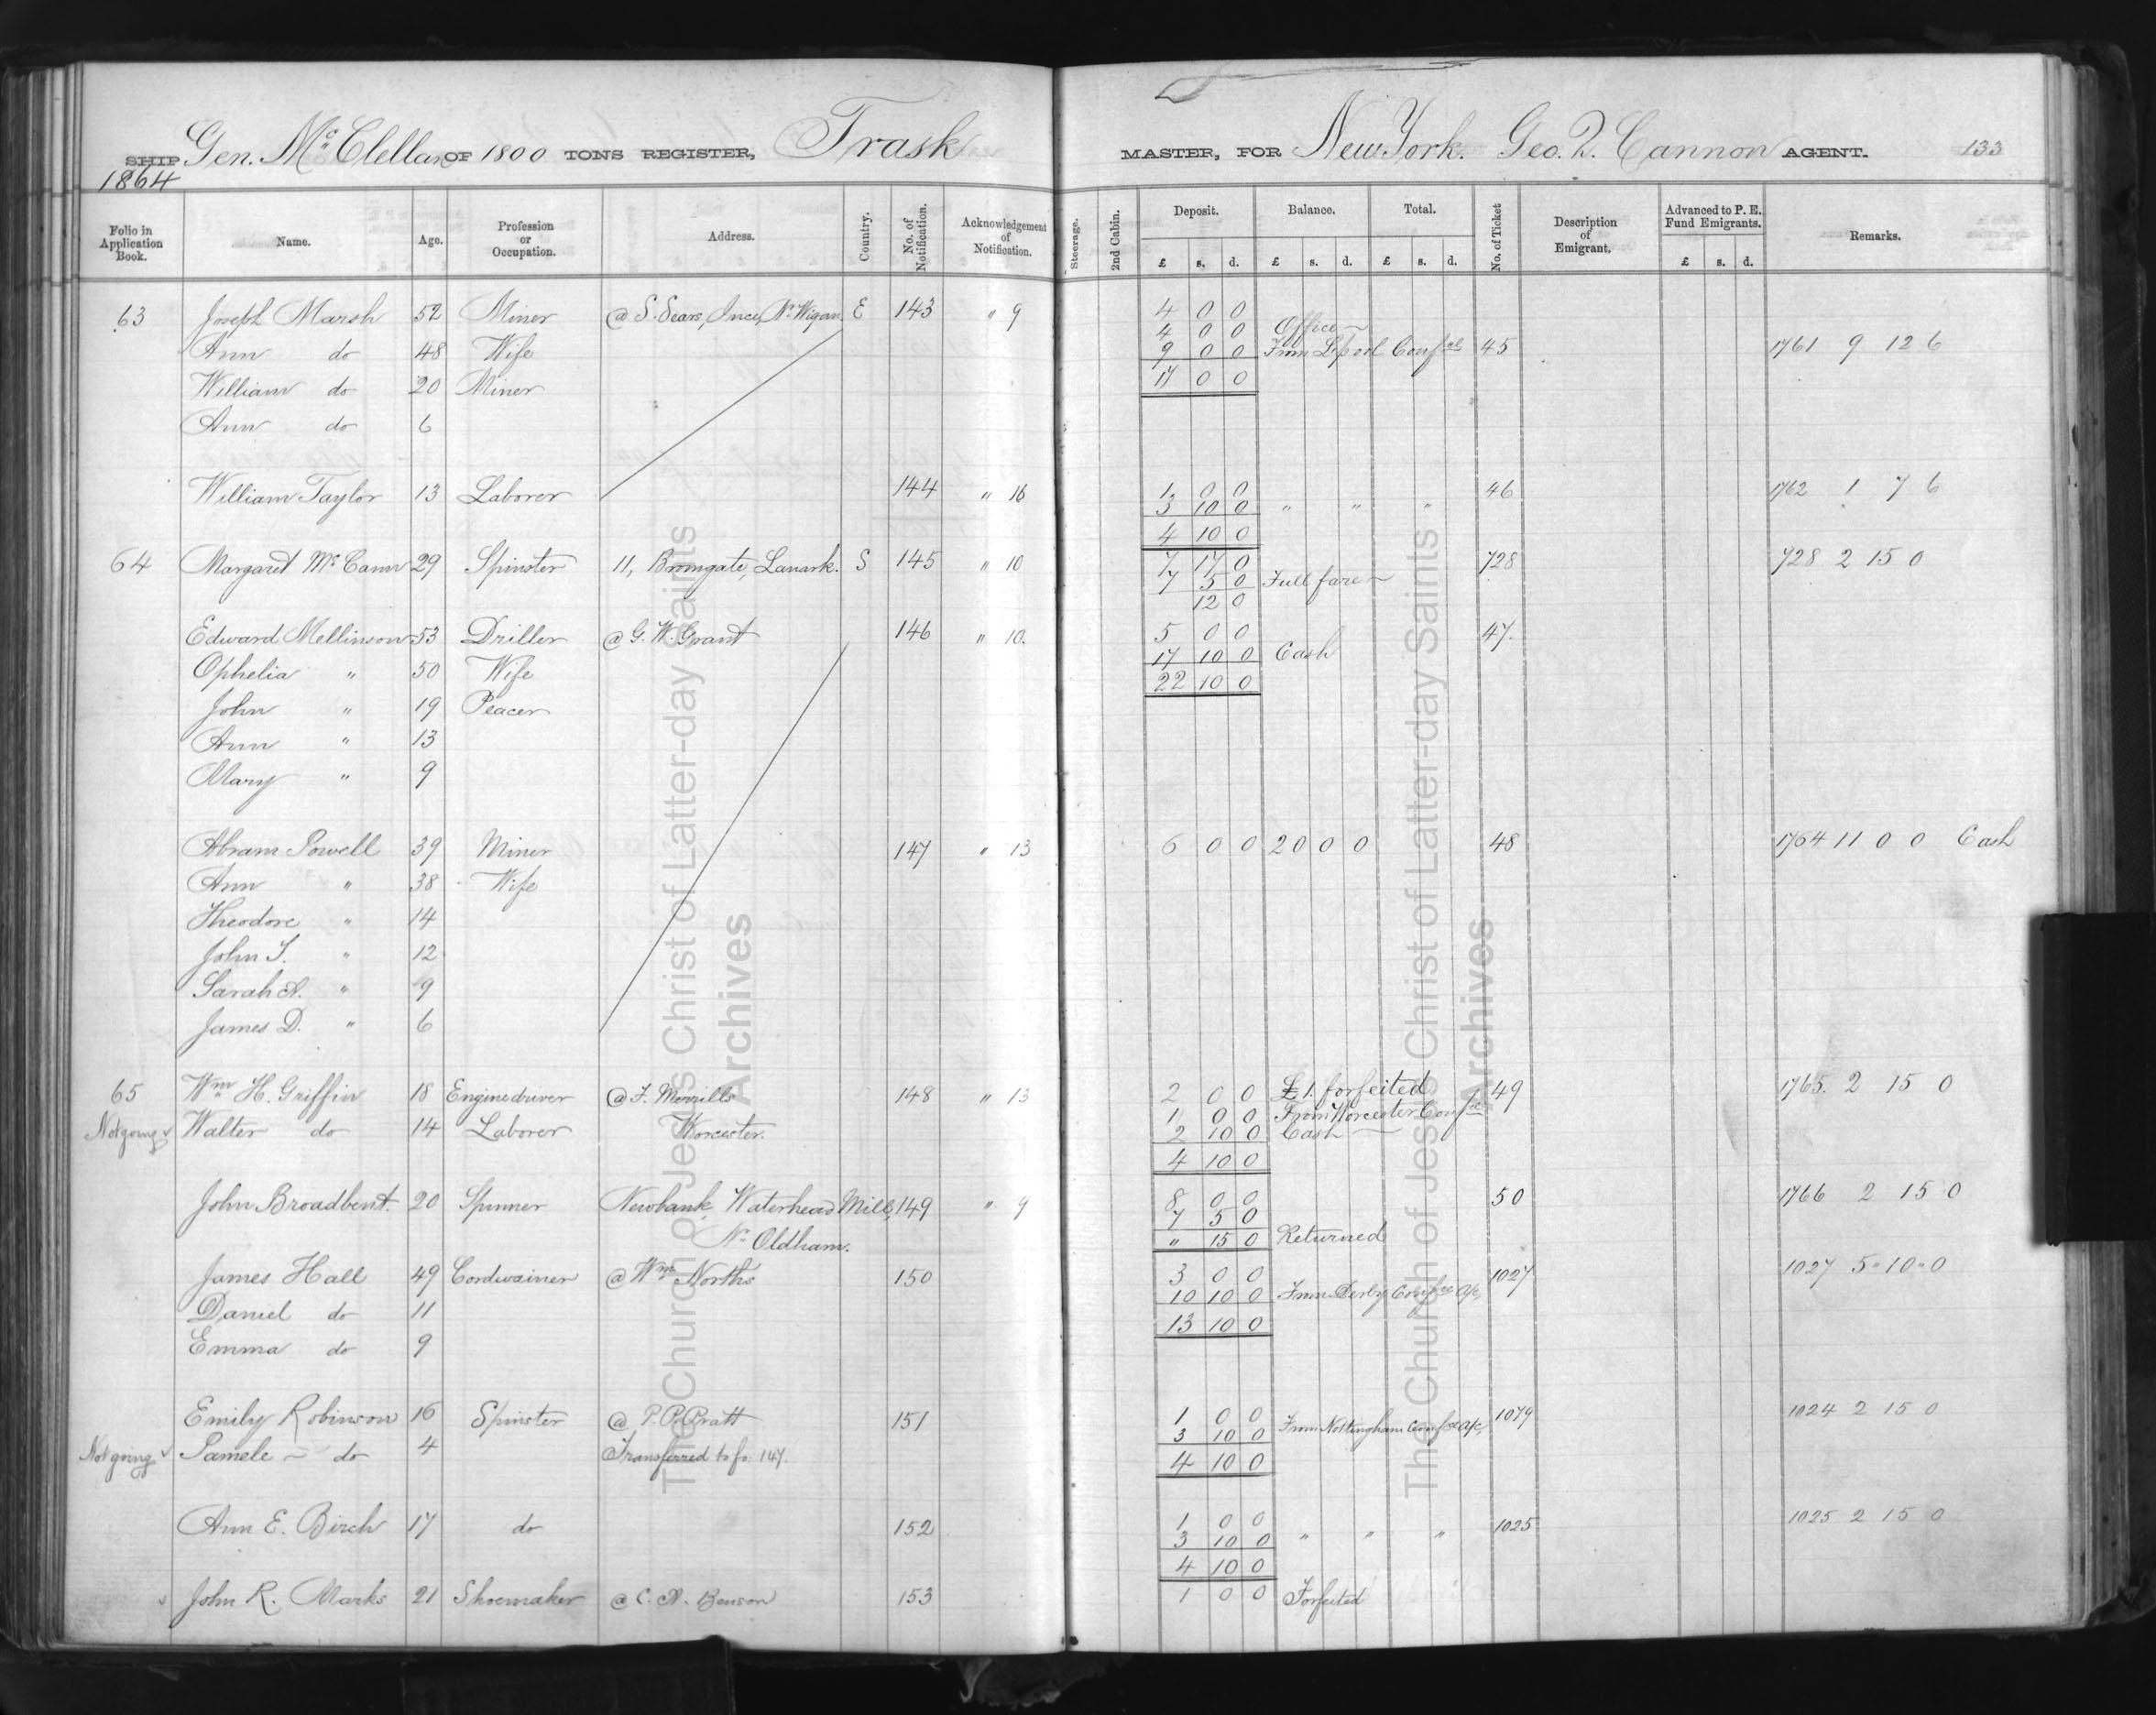 SHIP Gen. Mc Clellan OF 1800 TONS REGISTER, Trask MASTER, FOR New York. Geo. Q. Cannon AGENT. 133
1864
Folio in Application Book. Name. Age. Profession or Occupation. Address. Country. No. of Notification. Acknowledgement of Notification. Steerage. 2nd Cabin. Deposit. Balance. Total. No. of Ticket Description of Emigrant. Advanced to P. E. Fund Emigrants. Remarks.
£ s. d. £ s. d. £ s. d. £ s. d.
63 Joseph Marsh 52 Miner @ S. Sears, Ince, Nr. Wigan. E 143 " 9 4 0 0
4 0 0 Office
Ann do 48 Wife 9 0 0 From Lpool Confce 45 1761 9 12 6
William do 20 Miner 17 0 0
Ann do 6
William Taylor 13 Laborer 144 " 16 1 0 0 46 1762 1 7 6
3 10 0 " " "
4 10 0
64 Margaret Mc Cann 29 Spinster 11, Bromgate, Lanark. S 145 " 10 7 17 0 728 728 2 15 0
7 5 0 Full fare
12 0
Edward Mellinson 53 Driller @ G. W. Grant 146 " 10. 5 0 0 47.
17 10 0 Cash
Ophelia " 50 Wife 22 10 0
John " 19 Peacer
Ann " 13
Mary " 9
Abram Powell 39 Miner 147 " 13 6 0 0 20 0 0 48 1764 11 0 0 Cash
Ann " 38 Wife
Theodore " 14
John T. " 12
Sarah A. " 9
James D. " 6
65 Wm H. Griffin 18 Enginedriver @ F. Morrills 148 " 13 2 0 0 £1. forfeited 49 1765. 2 15 0
1 0 0 From Worcester Confce
Not going Walter do 14 Laborer Worcester. 2 10 0 Cash
4 10 0
John Broadbent. 20 Spinner Newbank, Waterhead Mill, 149 " 9 8 0 0 50 1766 2 15 0
7 5 0
Nr. Oldham. " 15 0 Returned
James Hall 49 Cordwainer @ Wm Norths 150 3 0 0 1027 1027 5 " 10 " 0
10 10 0 From Derby Confce a/c,
Daniel do 11 13 10 0
Emma do 9
Emily Robinson 16 Spinster @ P. P. Pratt 151 1 0 0 1079 1024 2 15 0
3 10 0 From Nottingham Confce a/c,
Not going Pamele do 4 Transferred to fo. 147. 4 10 0
Ann E. Birch 17 do 152 1 0 0 1025 1025 2 15 0
3 10 0 " " "
4 10 0
John R. Marks 21 Shoemaker @ C. A. Benson 153 1 0 0 Forfeited
The Church of Jesus Christ of Latter-day Saints
Archives
The Church of Jesus Christ of Latter-day Saints
Archives